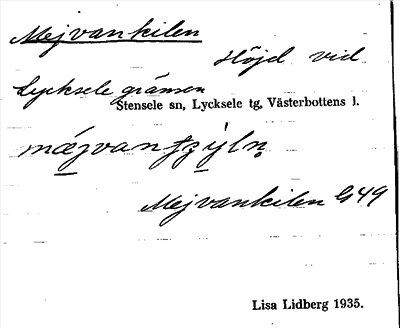 Mejvankilen
Höjd vid
Lycksele gränsen
Stensele sn, Lycksele tg, Västerbottens l.
Mejvankilen G49
Lisa Lidberg 1935.